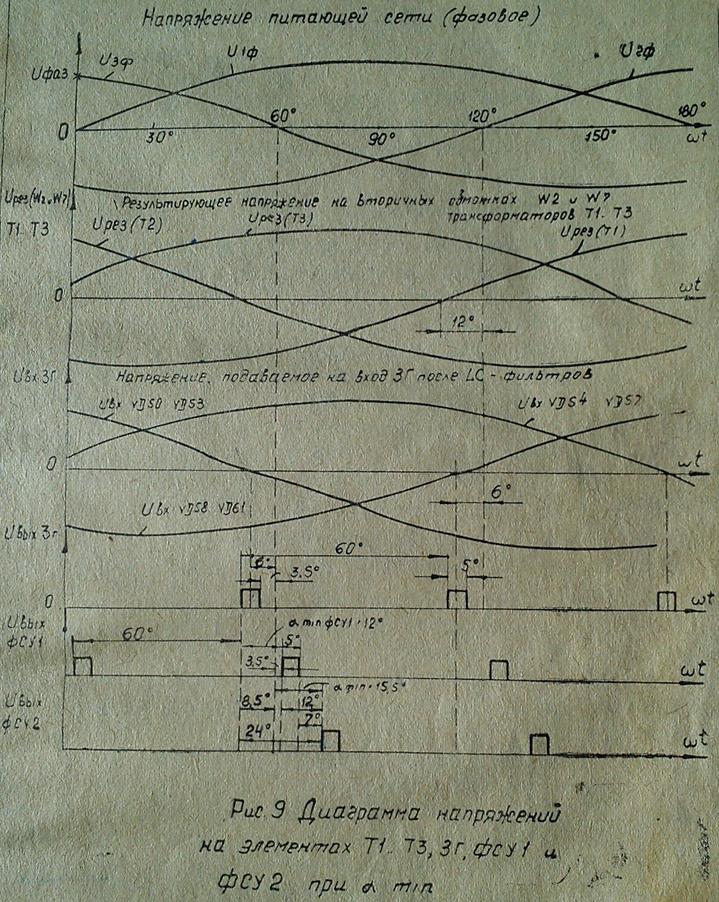 Напряжение питающей сети (фазовое)
Uфаз
U3ф
U1ф
U2ф
0
30°
60°
90°
120°
150°
180°
ωt
Uрез(W2 и W7)
T1. T3
Результирующее напряжение на вторичных обмотках W2 и W7
трансформаторов T1. T3
Uрез(T2)
Uрез(T3)
Uрез(T1)
0
ωt
12°
Uвх 3г
Напряжение, подаваемое на вход 3Г после LC - фильтров
Uвх VD50 VD53
Uвх VD54 VD57
0
ωt
6°
Uвх VD58 VD61
Uвых 3г
60°
6°
3.5°
5°
0
ωt
Uвых
ФСУ1
60°
α min фСУ1 = 12°
5°
3,5°
ωt
α min = 15,5°
Uвых
ФСУ2
8,5°
12°
7°
24°
ωt
Рис. 9 Диаграмма напряжений
на элементах T1.. T3, 3г, фСУ1 и
ФСУ2 при α min